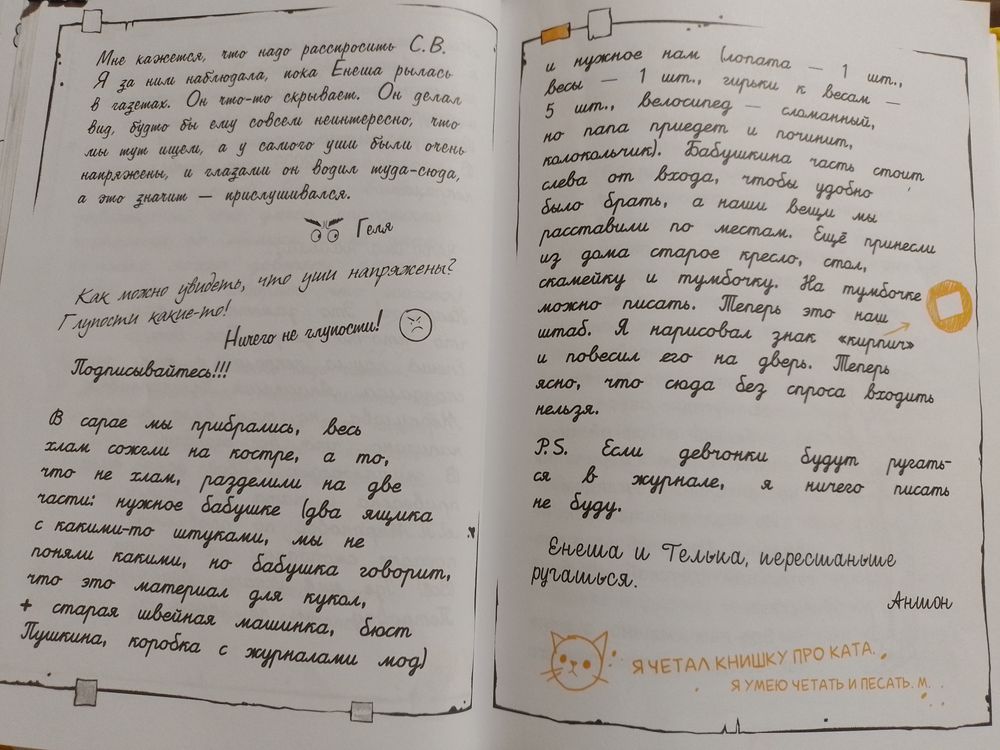 Мне кажется, что надо расспросить С.В.
Я за ним наблюдала, пока Енеша рылась
в газетах. Он что-то скрывает. Он делал
вид, будто бы ему совсем неинтересно, что
мы тут ищем, а у самого уши были очень
напряжены, и глазами он водил туда-сюда,
а это значит — прислушивался.
Геля
Как можно увидеть, что уши напряжены?
Глупости какие-то!
Ничего не глупости!
Подписывайтесь!!!
В сарае мы прибрались, весь
хлам сожгли на костре, а то,
что не хлам, разделили на две
части: нужное бабушке (два ящика
с какими-то штуками, мы не
поняли какими, но бабушка говорит,
что это материал для кукол,
+ старая швейная машинка, бюст
Пушкина, коробка с журналами мод)
и нужное нам (лопата — 1 шт.,
весы — 1 шт., гирьки к весам —
5 шт., велосипед — сломанный,
но папа приедет и починит,
колокольчик). Бабушкина часть стоит
слева от входа, чтобы удобно
было брать, а наши вещи мы
расставили по местам. Ещё принесли
из дома старое кресло, стол,
скамейку и тумбочку. На тумбочке
можно писать. Теперь это наш
штаб. Я нарисовал знак «кирпич»
и повесил его на дверь. Теперь
ясно, что сюда без спроса входить
нельзя.
P.S. Если девчонки будут ругать-
ся в журнале, я ничего писать
не буду.
Енеша и Гелька, перестаньте
ругаться.
Антон
Я ЧЕТАЛ КНИШКУ ПРО КАТА.
Я УМЕЮ ЧЕТАТЬ И ПЕСАТЬ. М.